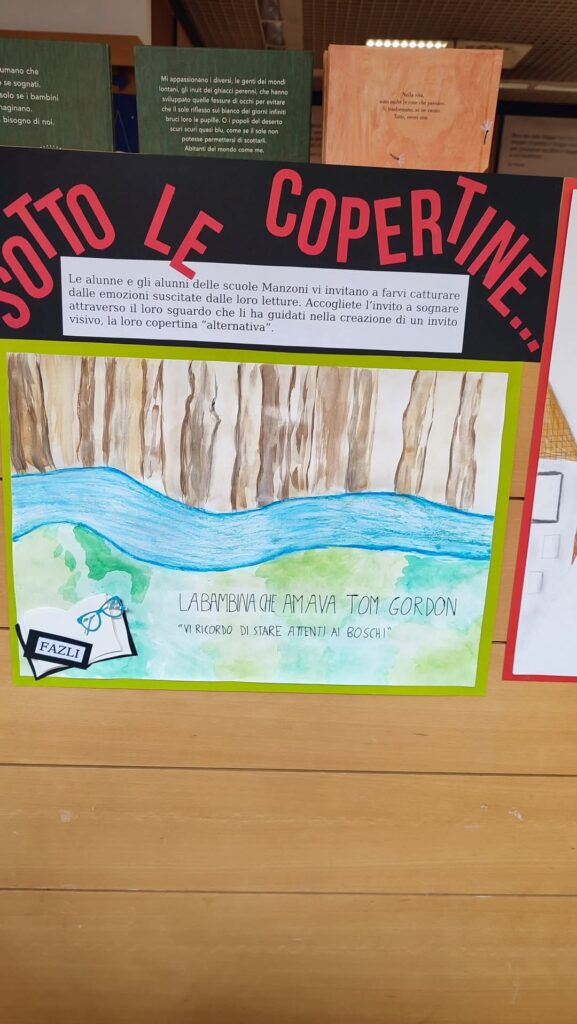 umano che
se sognati.
solo se i bambini
maginano.
bisogno di noi.
Mi appassionano i diversi, le genti dei mondi
lontani, gli inuit dei ghiacci perenni, che hanno
sviluppato quelle fessure di occhi per evitare
che il sole riflesso sul bianco dei giorni infiniti
bruci loro le pupille. O i popoli del deserto
scuri scuri quasi blu, come se il sole non
potesse permettersi di scottarli.
Abitanti del mondo come me.
Nella vita,
sono molte le cose che passano.
Si trasformano, se ne vanno.
Tutte, meno una.
SOTTO LE COPERTINE...
Le alunne e gli alunni delle scuole Manzoni vi invitano a farvi catturare
dalle emozioni suscitate dalle loro letture. Accogliete l'invito a sognare
attraverso il loro sguardo che li ha guidati nella creazione di un invito
visivo, la loro copertina "alternativa".
LA BAMBINA CHE AMAVA TOM GORDON
"VI RICORDO DI STARE ATTENTI AI BOSCHI"
FAZLI